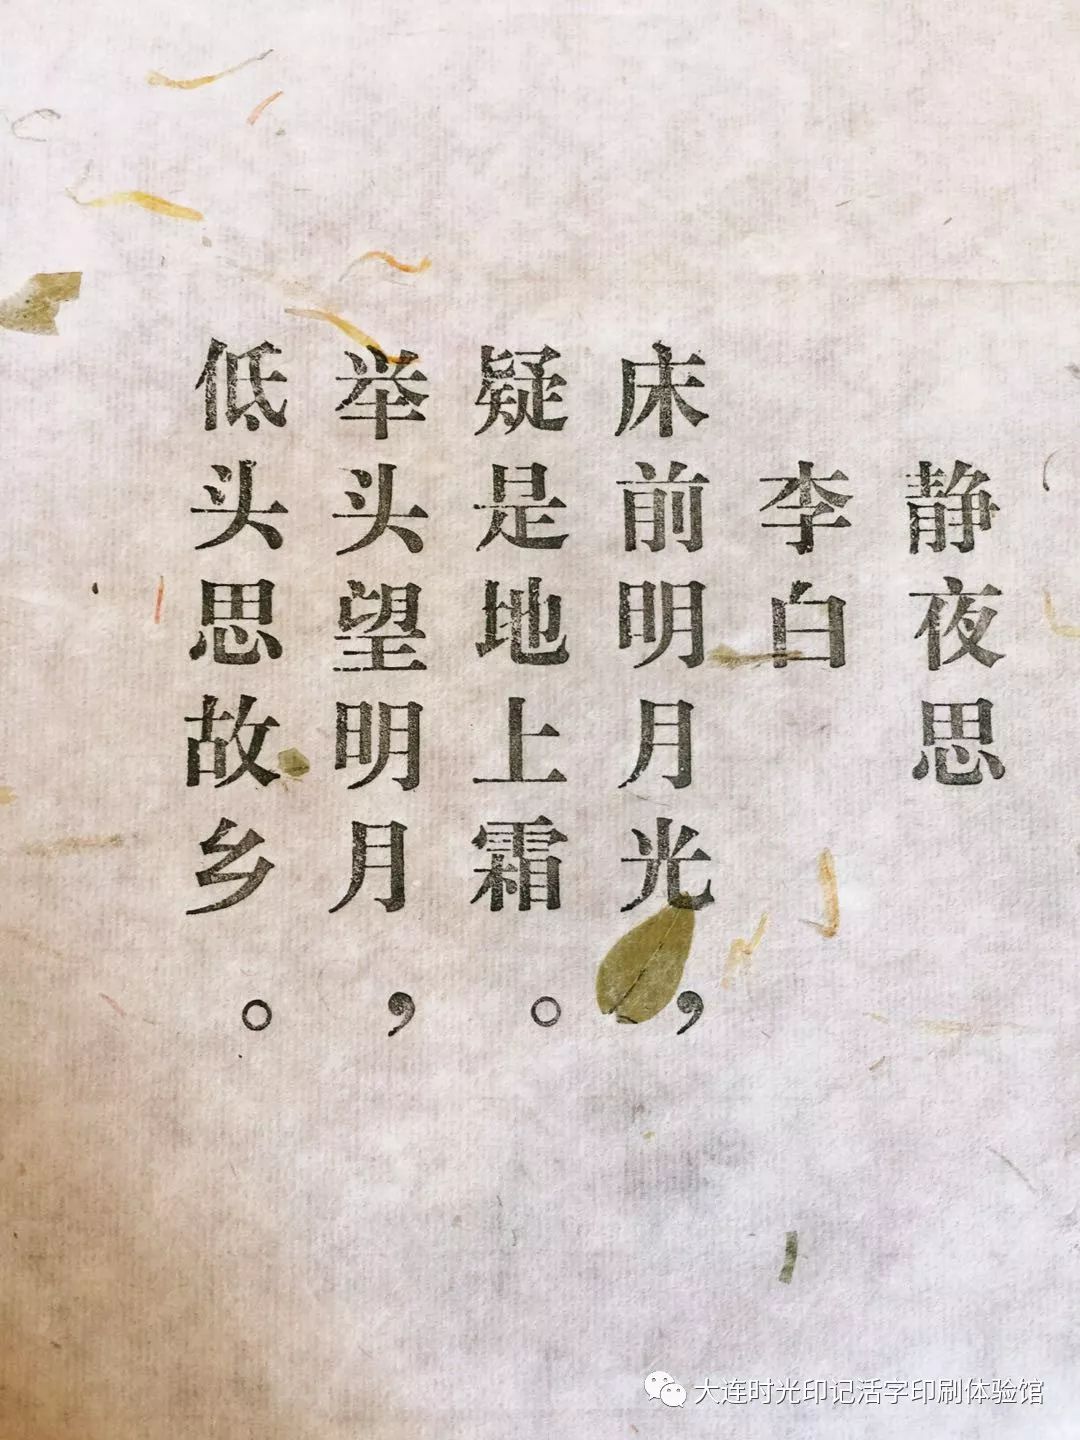 静夜思
李白
床前明月光，
疑是地上霜。
举头望明月，
低头思故乡。
大连时光印记活字印刷体验馆